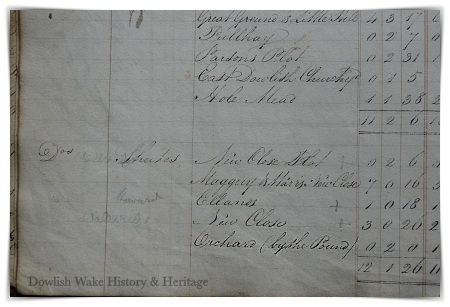 Great Ground & Little Hill 4 3 17
Pullhay 0 2 7 0
Parsons Plot 0 2 31
East Dowlish Churchyd 0 1 5
Hole Mead 1 1 38 2
11 2 6
Dos Shutes New Close Plot + 0 2 6
Maggey & New Close 7 0 16
Ellands + 1 0 18 1
New Close + 3 0 26 2
Orchard (by the Pound) 0 2 0 1
12 1 26
Dowlish Wake History & Heritage